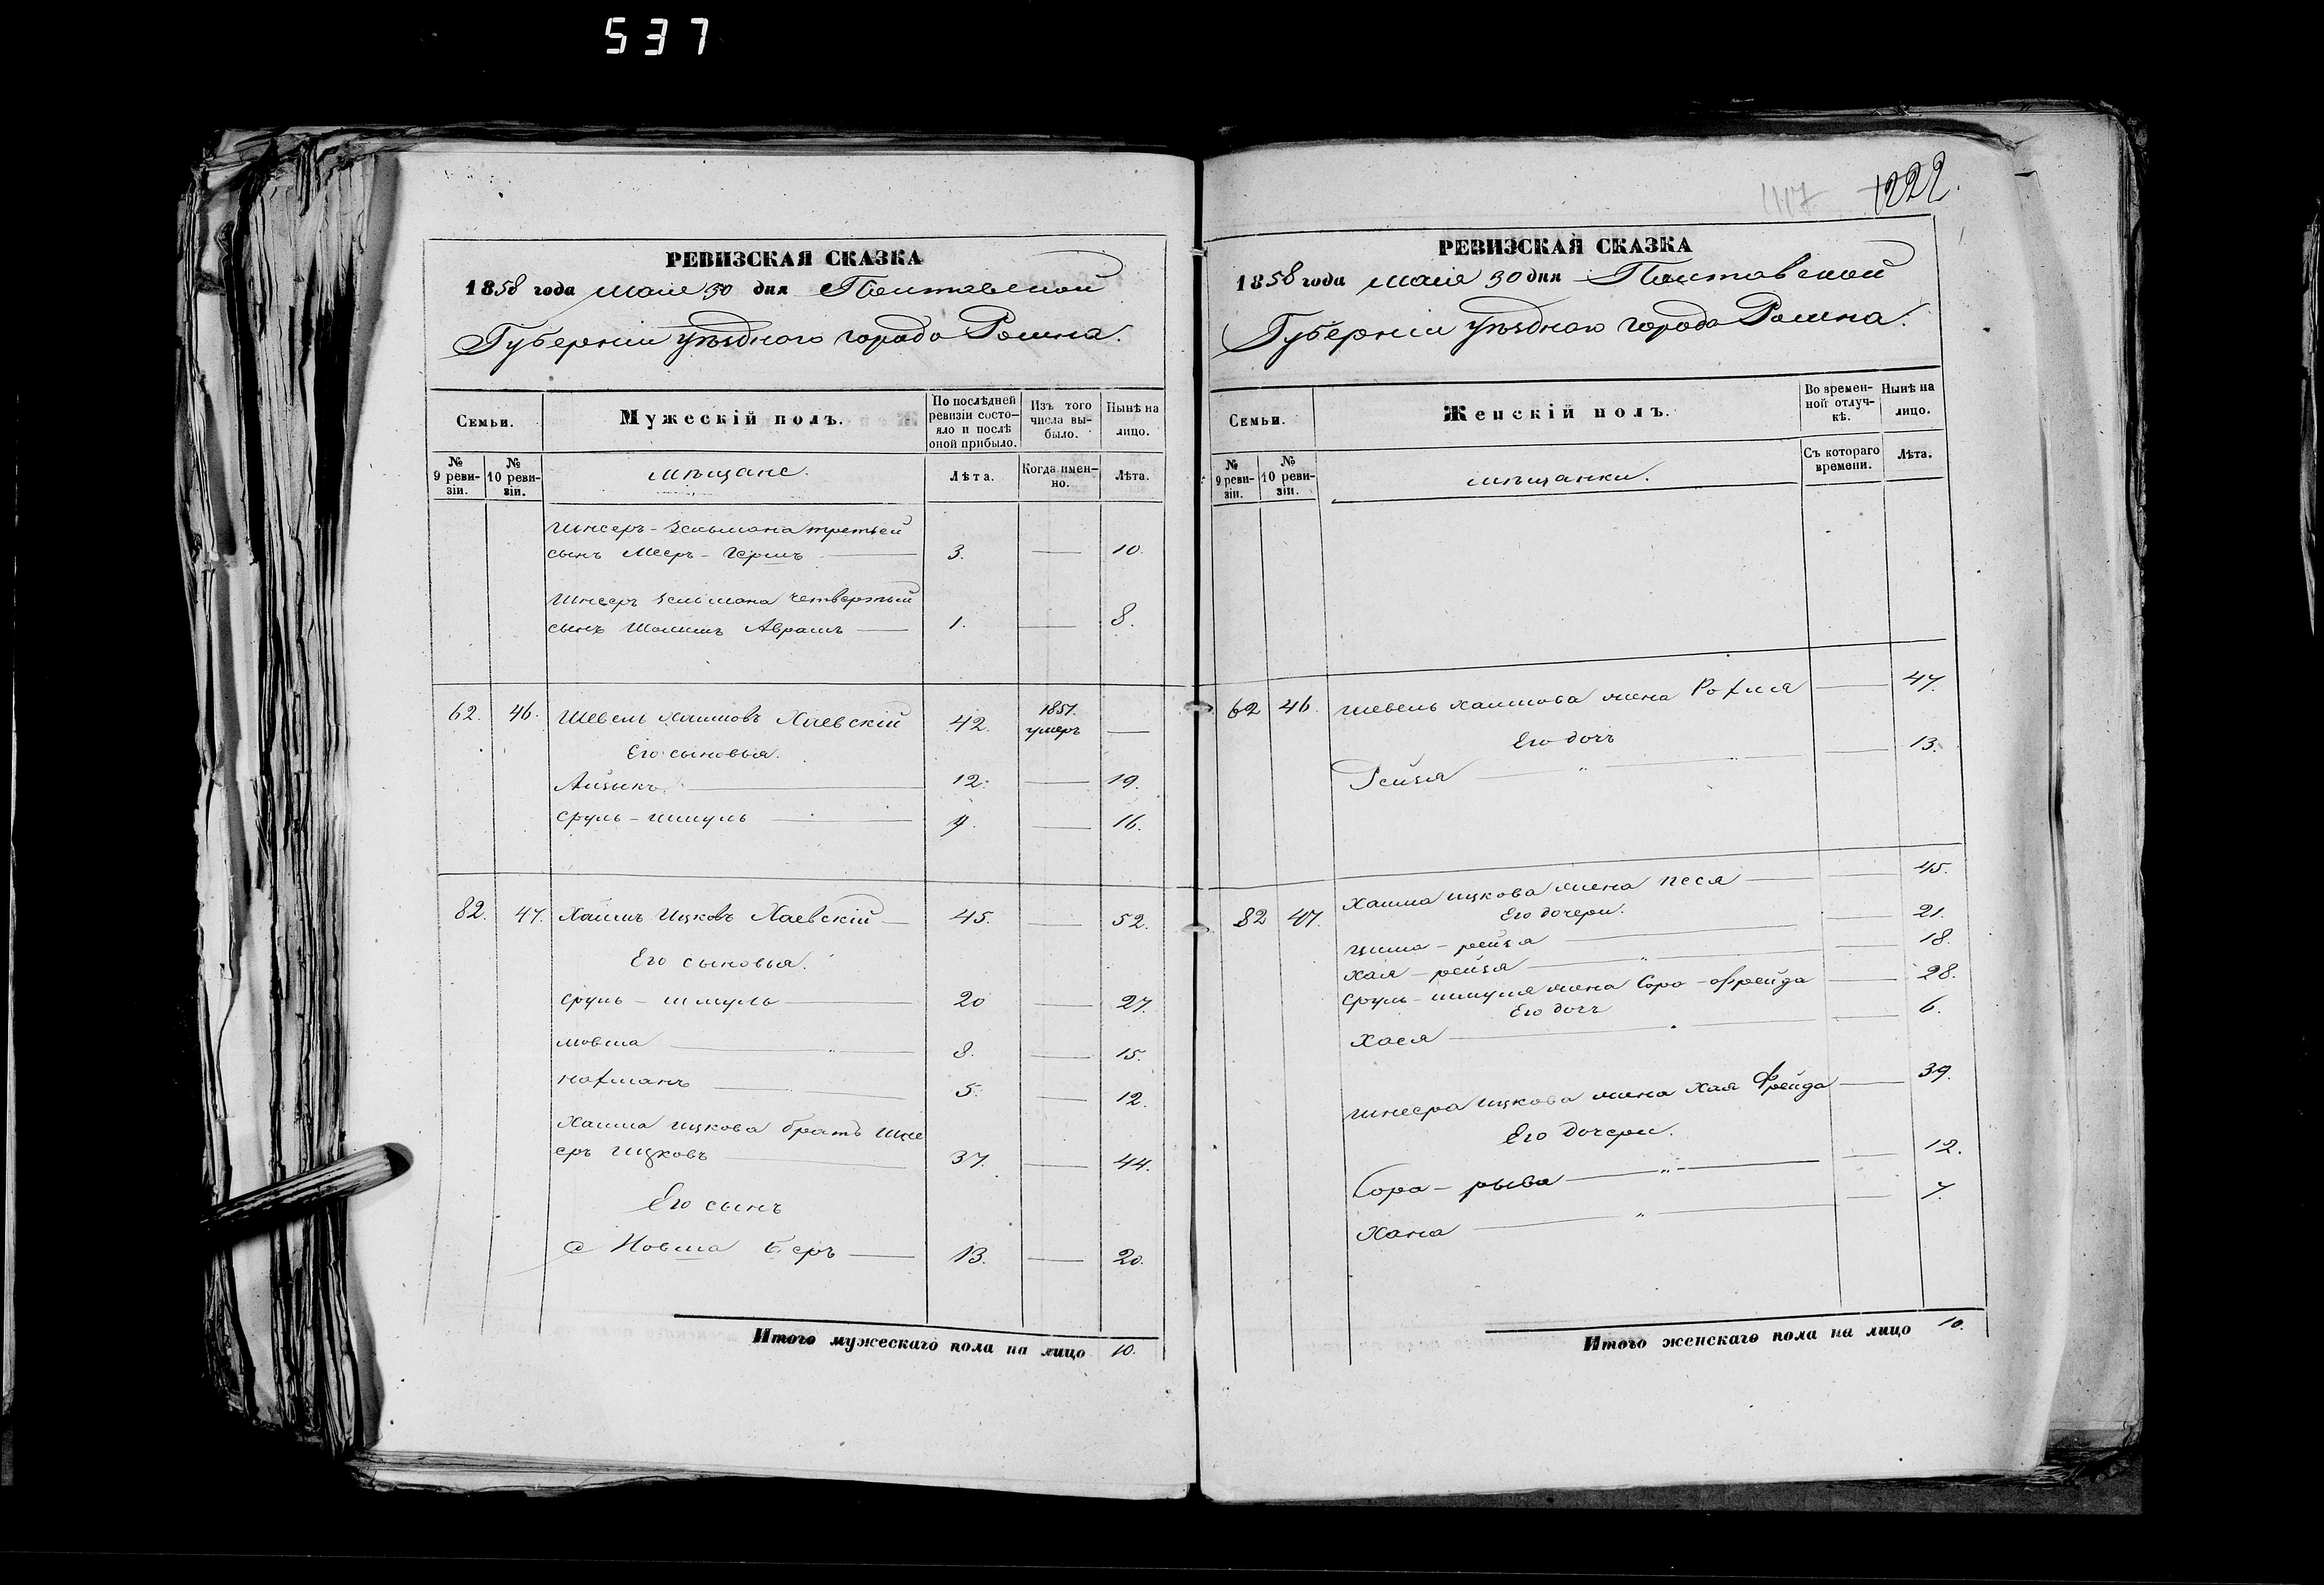 537
РЕВИЗСКАЯ СКАЗКА
1858 года маія 30 дня Полтавской
Губерніи уѣзднаго города Ромна.
Семьи.
Мужескій полъ.
По послѣдней ревизіи состо-яло и послѣ оной прибыло.
Изъ того числа вы-было.
Нынѣ на лицо.
№ 9 реви-зіи.
№ 10 реви-зіи.
мѣщане.
Лѣта.
Когда имен-но.
Лѣта.
Шнееръ-Зельмана третьей
сынъ Мееръ-Гершъ 3. 10.
Шнееръ Зельмана четвертый
сынъ Авраамъ 1. 8.
62. 46. Шевель Хаимовъ Хаевскій 42. 1851. умеръ
Его сыновья.
Айзыкъ 12. 19.
Сруль-Шмуль 9. 16.
82. 47. Хаимъ Ицковъ Хаевскій 45. 52.
Его сыновья.
Сруль-Шмуль 20 27.
Мовша 8. 15.
Нахманъ 5. 12.
Хаима Ицкова братъ Шне
еръ Ицковъ 37. 44.
Его сынъ
Мовша Беръ 13. 20.
Итого мужескаго пола на лицо 10.
1222.
РЕВИЗСКАЯ СКАЗКА
1858 года маія 30 дня Полтавской
Губерніи уѣзднаго города Ромна.
Семьи.
Женскій полъ.
Во времен-ной отлуч-кѣ.
Нынѣ на лицо.
№ 9 реви-зіи.
№ 10 реви-зіи.
мѣщанки.
Съ котораго времени.
Лѣта.
62 46. Шевель Хаимова жена Рохля 47.
Его дочь
Рейзя 13.
82 47. Хаима Ицкова жена Песя 45.
Его дочери.
рейзя 21.
Хая-рейзя 18.
Сруль-Шмуля жена Сора-Фрейда 28.
Его дочь
Хася 6.
Шнеера Ицкова жена Хая Фрейда 39.
Его дочери.
Сора-рыва 12.
Хана 7.
Итого женскаго пола на лицо 10.